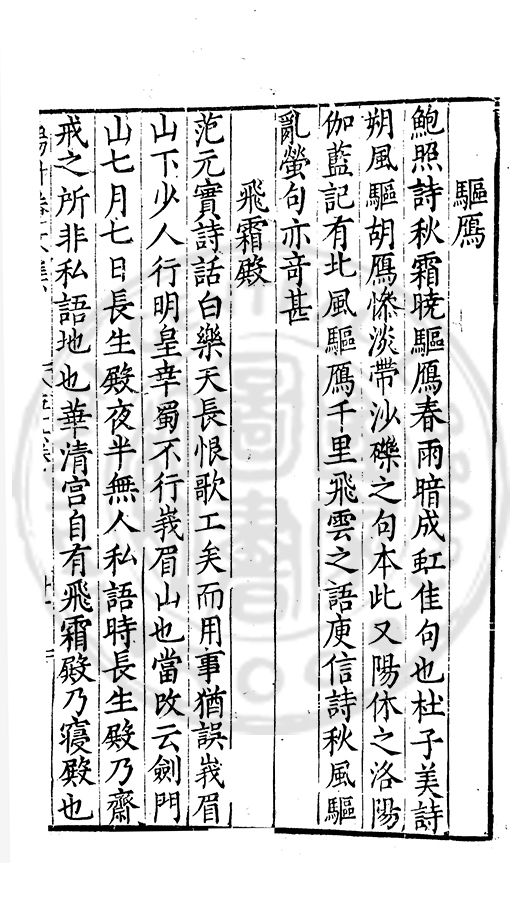 驅鴈
鮑照詩秋霜曉驅鴈春雨暗成虹佳句也杜子美詩
朔風驅胡鴈慘淡帶沙礫之句本此又陽休之洛陽
伽藍記有北風驅鴈千里飛雲之語庾信詩秋風驅
亂螢句亦竒甚
飛霜殿
范元實詩話白樂天長恨歌工矣而用事猶誤峩眉
山下少人行明皇幸蜀不行峩眉山也當改云劒門
山七月七日長生殿夜半無人私語時長生殿乃齋
戒之所非私語地也華清宮自有飛霜殿乃寢殿也